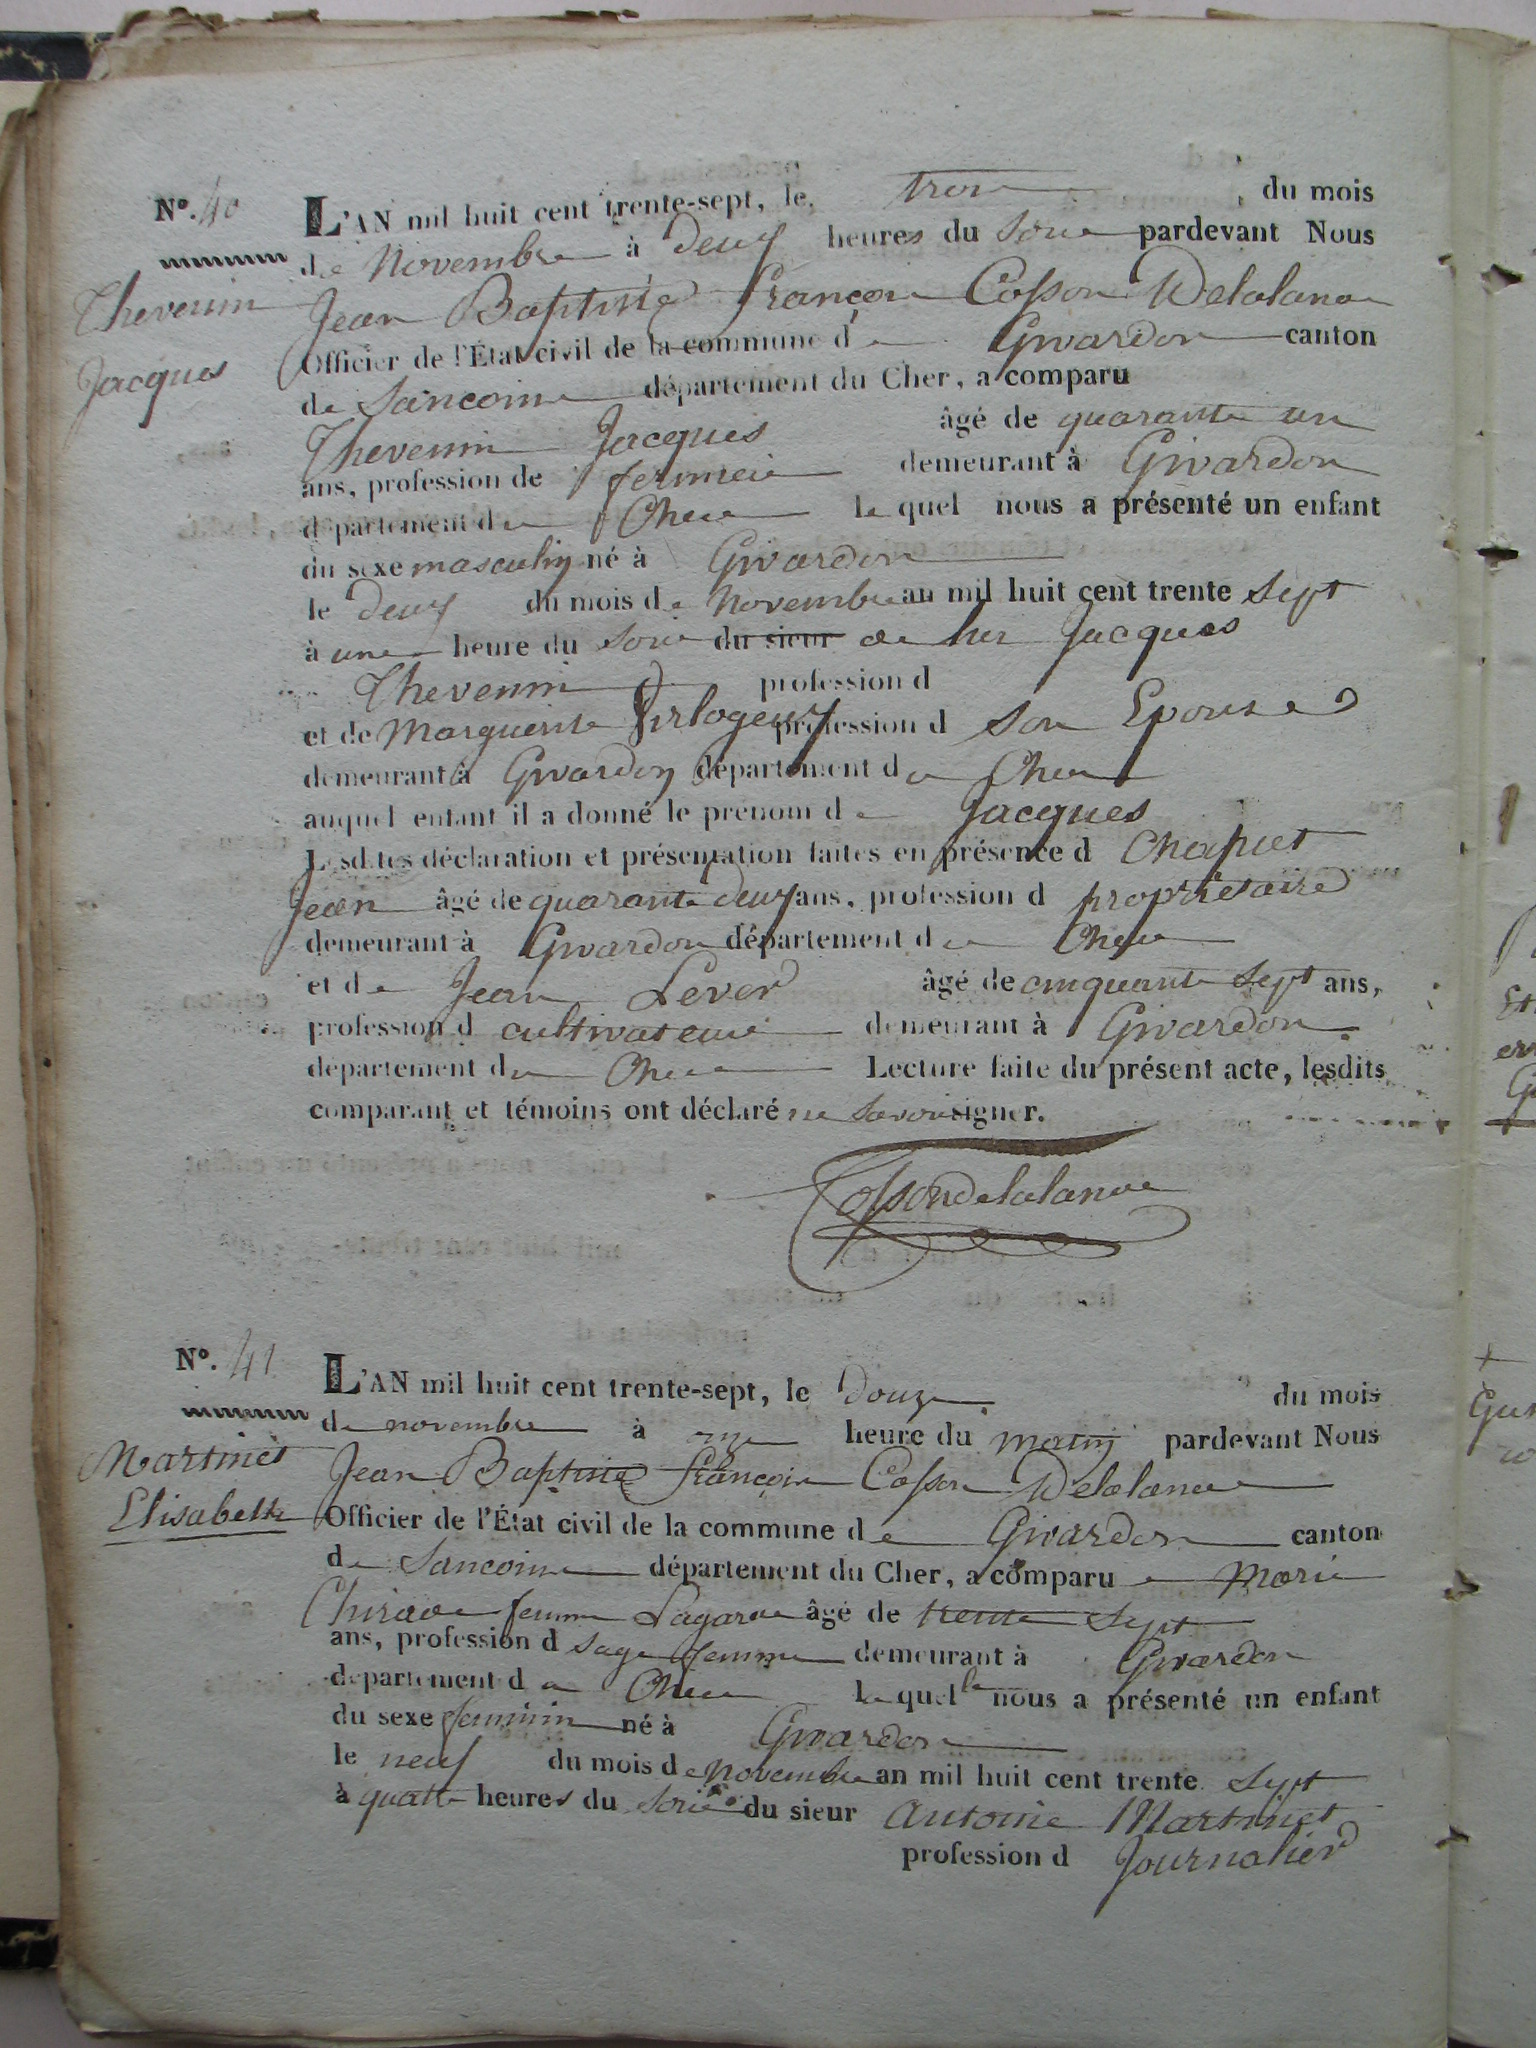 N.º 40
L'AN mil huit cent trente-sept, le trois du mois
de Novembre à deux heures du soir pardevant Nous
Thevenin
Jacques
Jean Baptiste François Cosson Delalande
Officier de l'État civil de la commune de Givardon canton
de Sancoins département du Cher, a comparu
Thevenin Jacques âgé de quarante un
ans, profession de fermier demeurant à Givardon
département du Cher lequel nous a présenté un enfant
du sexe masculin né à Givardon
le deux du mois de Novembre an mil huit cent trente sept
à une heure du soir du sieur de lui Jacques
Thevenin profession d
et de Marguerite Virlogeux profession d son Epouse
demeurant à Givardon département du Cher
auquel enfant il a donné le prénom de Jacques
Lesdites déclaration et présentation faites en présence d Chaput
Jean âgé de quarante deux ans, profession d propriétaire
demeurant à Givardon département du Cher
et de Jean Lever âgé de cinquante sept ans,
profession d cultivateur demeurant à Givardon
département du Cher Lecture faite du présent acte, lesdits
comparant et témoins ont déclaré ne savoir signer.
Cossondelalande
N.º 41
L'AN mil huit cent trente-sept, le douze du mois
de novembre à onze heure du matin pardevant Nous
Martinet
Elisabeth
Jean Baptiste François Cosson Delalande
Officier de l'État civil de la commune de Givardon canton
de Sancoins département du Cher, a comparu Marie
femme Lagarde âgé de trente sept
ans, profession d sage femme demeurant à Givardon
département du Cher lequelle nous a présenté un enfant
du sexe feminin né à Givardon
le neuf du mois de novembre an mil huit cent trente sept
à quatre heures du soir du sieur Antoine Martinet
profession d Journalier